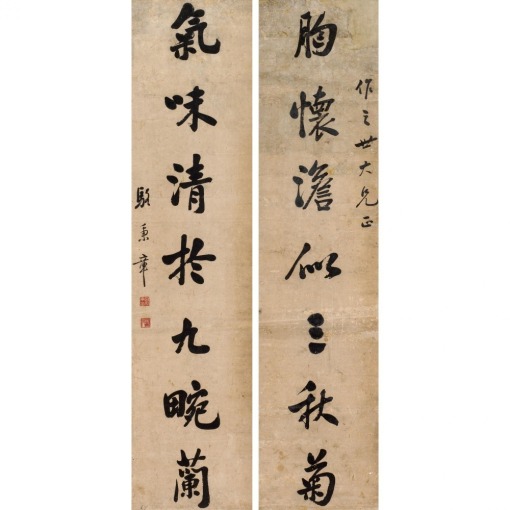 作之世大兄正
胸懷澹似三秋菊
氣味清於九畹蘭
駱秉章